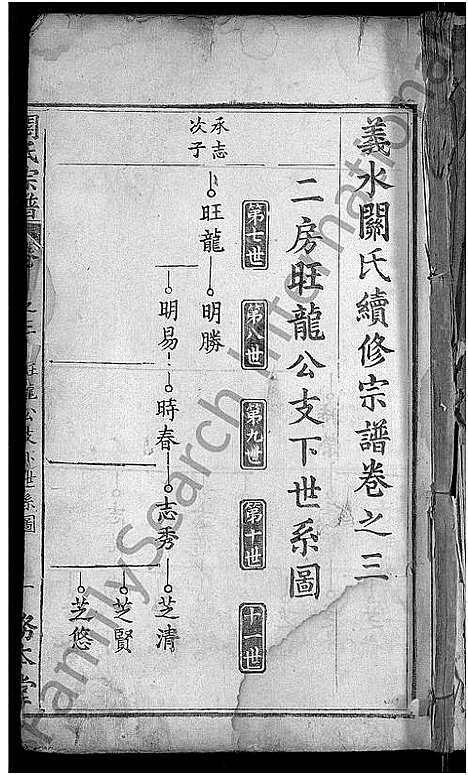 義水關氏續修宗譜卷之三
二房旺龍公支下世系圖
第七世
第八世
第九世
第十世
十一世
承志
次子
旺龍
明勝
明易
時春
志秀
芝清
芝賢
芝悠
關氏宗譜
卷之三
旺龍公支下世系圖
一
FamilySearch International